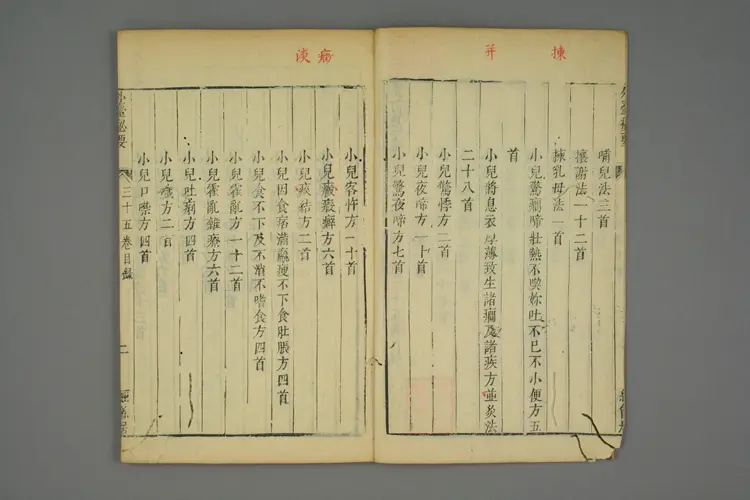 揀
并
哺兒法三首
攘謝法一十二首
揀乳母法一首
小兒驚癇啼壯熱不喫妳吐不已不小便方五
首
小兒將息衣厚薄致生諸癇及諸疾方並灸法
二十八首
小兒驚悸方二首
小兒夜啼方一十首
小兒驚夜啼方七首
外臺秘要
三十五卷目錄
二
經餘居
瘍
淡
小兒客忤方一十首
小兒癥瘕癖方六首
小兒痰結方二首
小兒因食痞滿羸瘦不下食肚脹方四首
小兒食不下及不消不嗜食方四首
小兒霍亂方一十二首
小兒霍亂雜療方六首
小兒吐痢方四首
小兒噦方二首
小兒口噤方四首